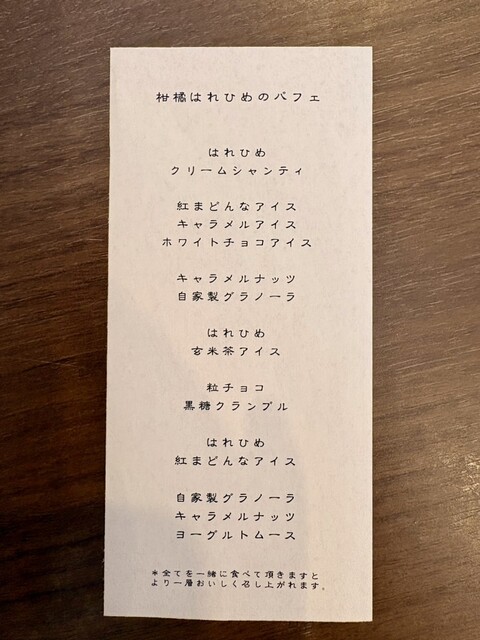 柑橘はれひめのパフェ
はれひめ
クリームシャンティ
紅まどんなアイス
キャラメルアイス
ホワイトチョコアイス
キャラメルナッツ
自家製グラノーラ
はれひめ
玄米茶アイス
粒チョコ
黒糖クランブル
はれひめ
紅まどんなアイス
自家製グラノーラ
キャラメルナッツ
ヨーグルトムース
＊全てを一緒に食べて頂きますと
より一層おいしく召し上がれます。